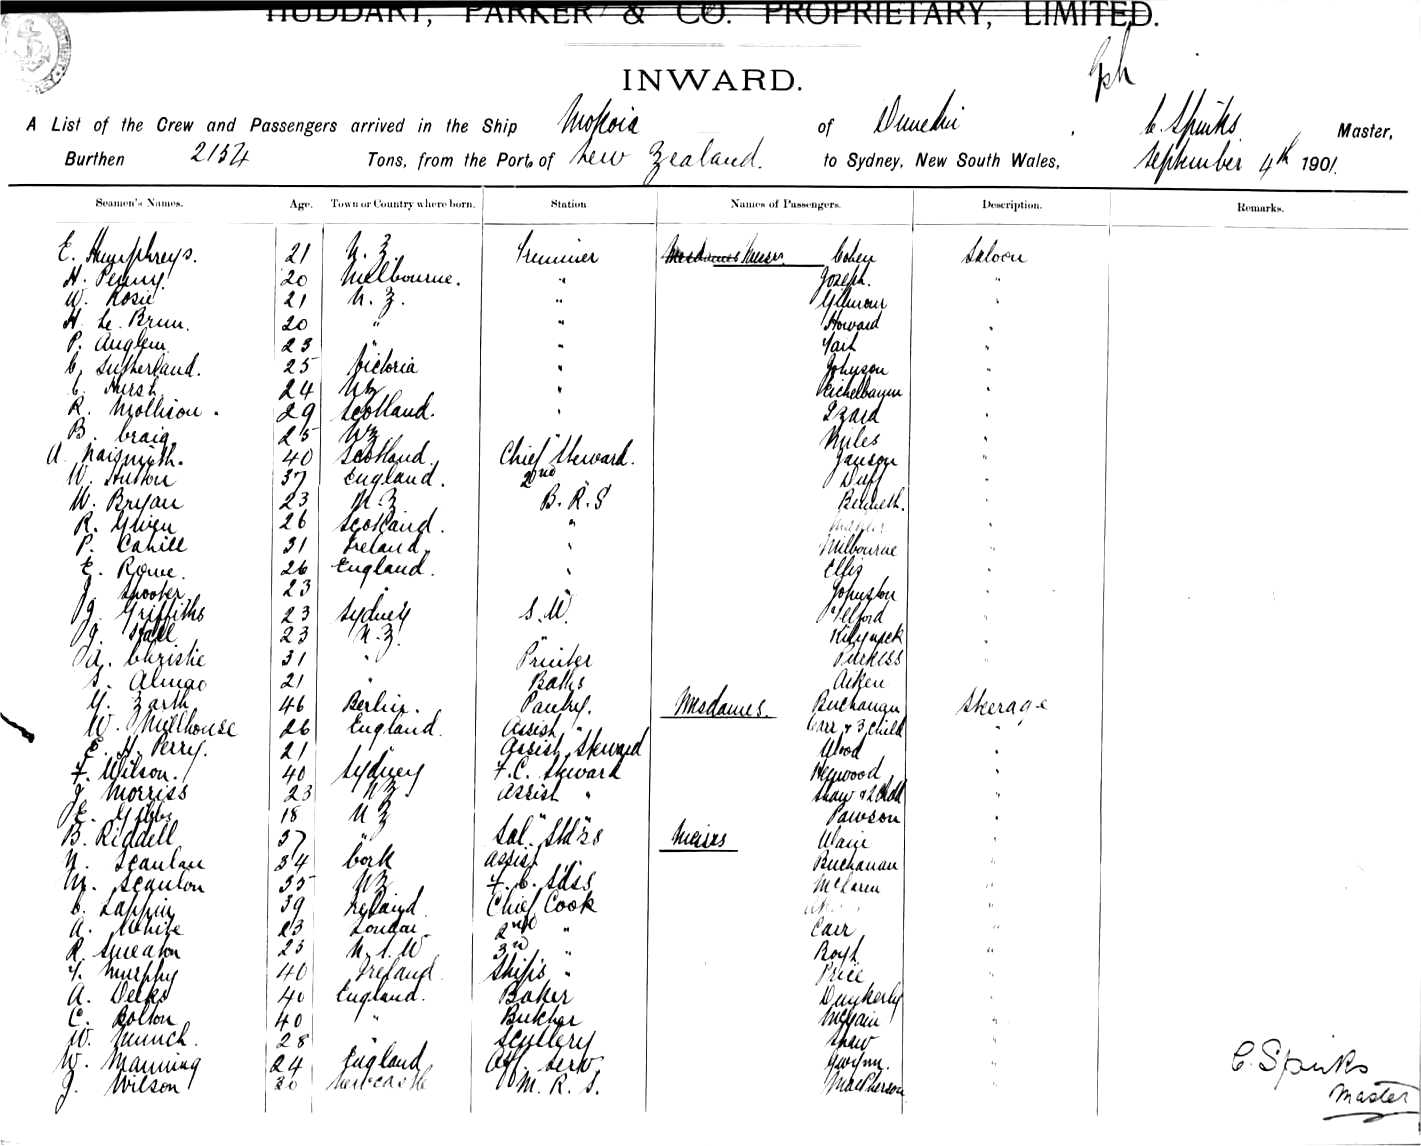 HUDDART, PARKER & CO. PROPRIETARY, LIMITED.
INWARD.
A List of the Crew and Passengers arrived in the Ship Mokoia of Dunedin, C. Spinks Master,
Burthen 2154 Tons, from the Port of New Zealand. to Sydney, New South Wales, September 4th 1901.
Seamen's Names. Age. Town or Country where born. Station Names of Passengers. Description. Remarks.
E. Humphreys. 21 N. Z. Trimmer Cohen Saloon
H. Penny. 20 Melbourne. " Joseph. "
W. Rosie 21 N. Z. " Gilmour "
H. Le. Brun. 20 " " Howard "
P. Anglem 23 " " "
C. Sutherland. 25 Victoria " Johnson "
C. Hirsh 24 NZ " Eichelbaum "
R. Mollison. 29 Scotland. " Izard "
B. Craig 25 NZ " Miles "
A. Naismith. 40 Scotland. Chief Steward. Janson "
W. Hutton 37 England. 2nd " Duff "
W. Bryan 23 N. Z B. R. S Bennett. "
R. Given 26 Scotland. " "
P. Cahill 31 Ireland. " Milbourne "
E. Rowe. 26 England. " Ellis "
J. 23 " Johnston "
G. Griffiths 23 Sydney S. W. Telford "
J. Hall 23 N. Z. " "
A. Christie 31 " Printer Purkiss "
S. Almao 21 " Baths Aitken "
G. Zarth 46 Berlin. Pantry. Mesdames. Buchanan Steerage
W. Millhouse 26 England. Assist " Carr & 3 Child "
E. H. Perry. 21 " Assist Steward Wood "
F. Wilson. 40 Sydney F. C. Steward Heywood "
J. Morriss 23 NZ Assist " Shaw & 2 Child "
E. Gibbs 18 N Z " Pawson "
B. Riddell 37 " Sal. Stdss Messrs Wain "
N. Scanlan 34 Cork Assist " Buchanan "
M. Scanlon 35 NZ F. C. Stdss McLaren "
C. Lappin 39 Ireland. Chief Cook "
A. White 23 London. 2nd " Carr "
R. Smeaton 23 N. S. W 3rd " Boyd "
T. Murphy 40 Ireland. Ships " Price "
A. Delks 40 England. Baker Dunkerly "
C. Bolton 40 " Butcher McGain "
W. Munich. 28 " Scullery Shaw "
W. Manning 24 England Off. Serv. Gwynn. "
J. Wilson 30 Newcastle M. R. S. MacPherson "
C. Spinks
Master